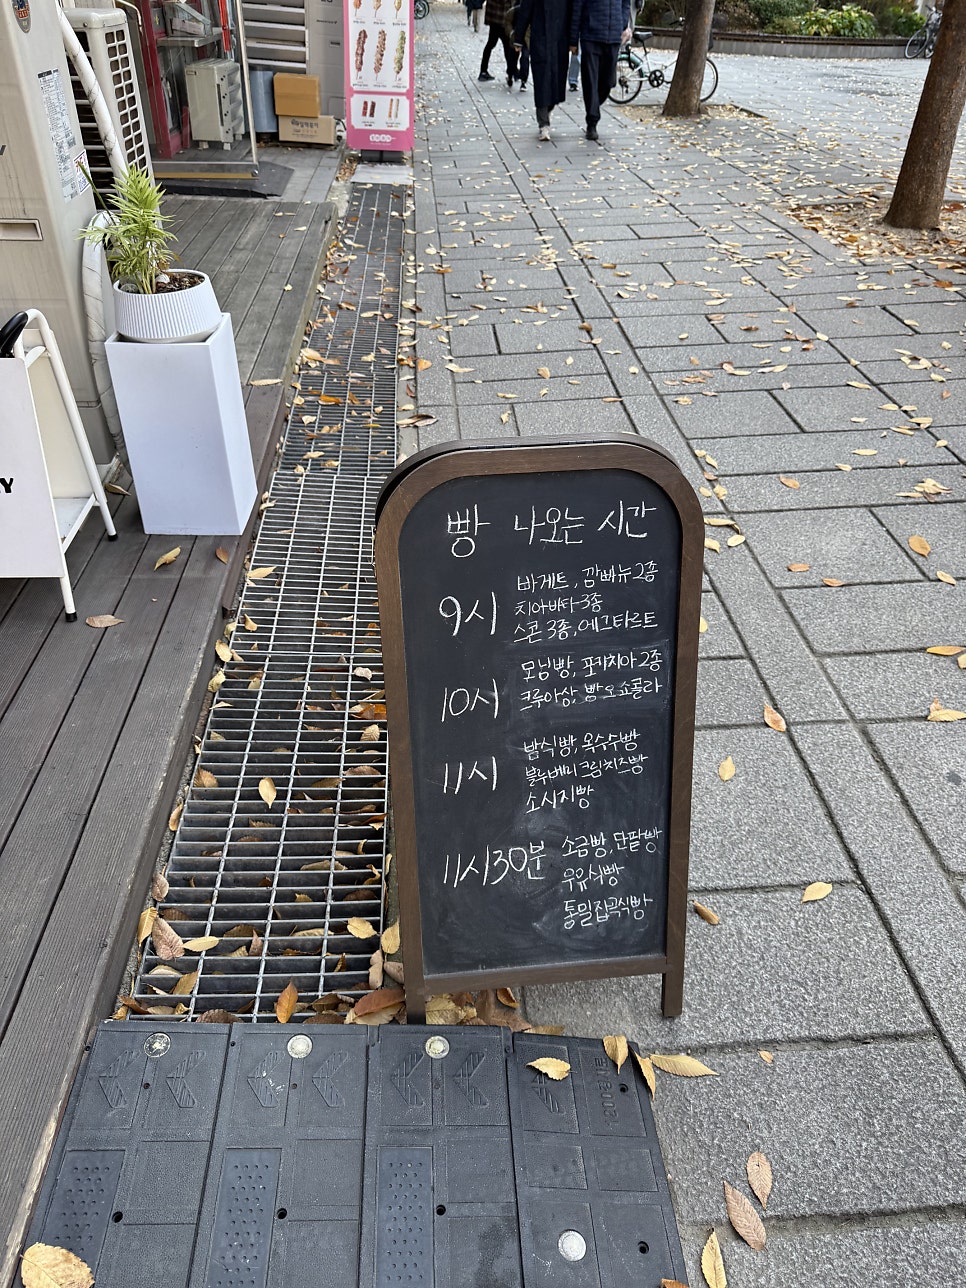 빵 나오는 시간
9시
바게트, 깜빠뉴 2종
치아바타 3종
스콘 3종, 에그타르트
10시
모닝빵, 포카치아 2종
크루아상, 빵오쇼콜라
11시
밤식빵, 옥수수빵
블루베리크림치즈빵
소시지빵
11시30분
소금빵, 단팥빵
우유식빵
통밀잡곡식빵
Y